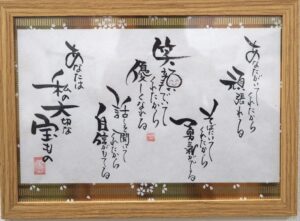 あなたがいてくれたから
頑張れる
そばにいてくれたから
勇気がでる
笑顔でいてくれたから
優しくなれる
話を聞いてくれたから
自信がもてる
あなたは
私の大切な
宝もの